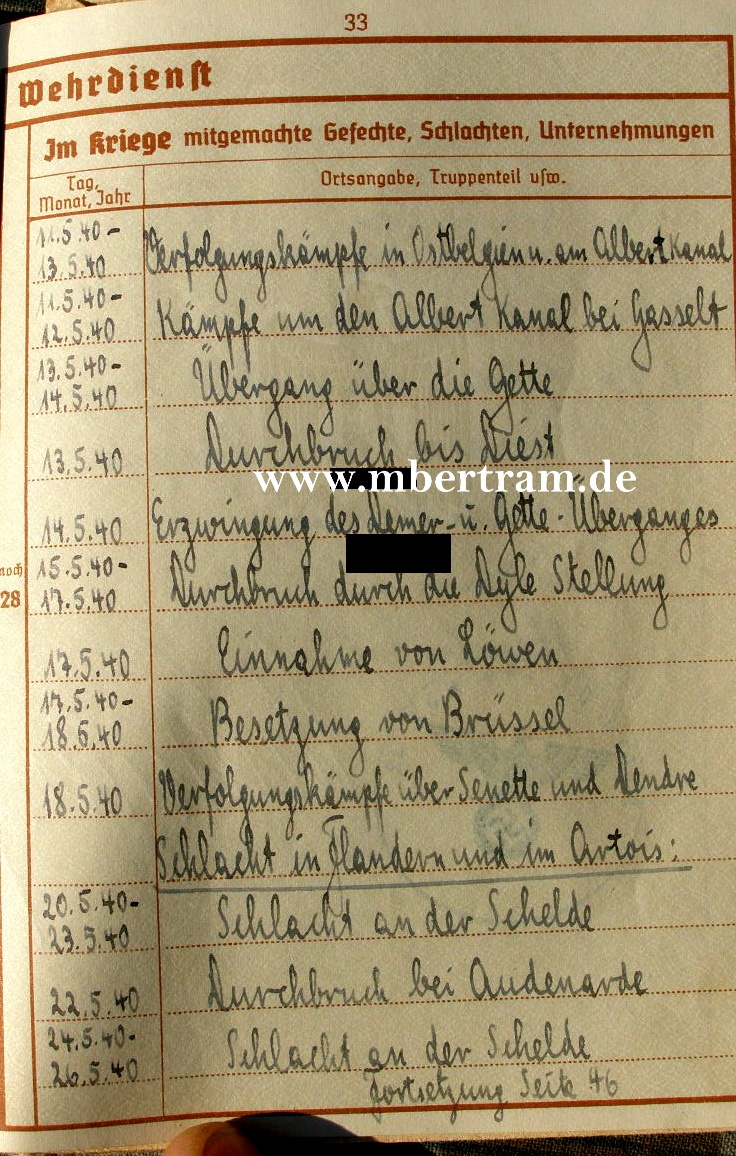 33
Wehrdienst
Im Kriege mitgemachte Gefechte, Schlachten, Unternehmungen
Tag, Monat, Jahr
Ortsangabe, Truppenteil usw.
11.5.40 - 13.5.40 Verfolgungskämpfe in Ostbelgien u. am Albert Kanal
11.5.40 - 12.5.40 Kämpfe um den Albert Kanal bei Gasselt
13.5.40 - 14.5.40 Übergang über die Gette
13.5.40 Durchbruch bis Diest
www.mbertram.de
14.5.40 Erzwingung des Demer- u. Gette-Überganges
noch 28
15.5.40 - 17.5.40 Durchbruch durch die Dyle Stellung
17.5.40 Einnahme von Löwen
17.5.40 - 18.6.40 Besetzung von Brüssel
18.5.40 Verfolgungskämpfe über Senette und Dendre
Schlacht in Flandern und im Artois:
20.5.40 - 23.5.40 Schlacht an der Schelde
22.5.40 Durchbruch bei Audenarde
24.5.40 - 26.5.40 Schlacht an der Schelde
Fortsetzung Seite 46